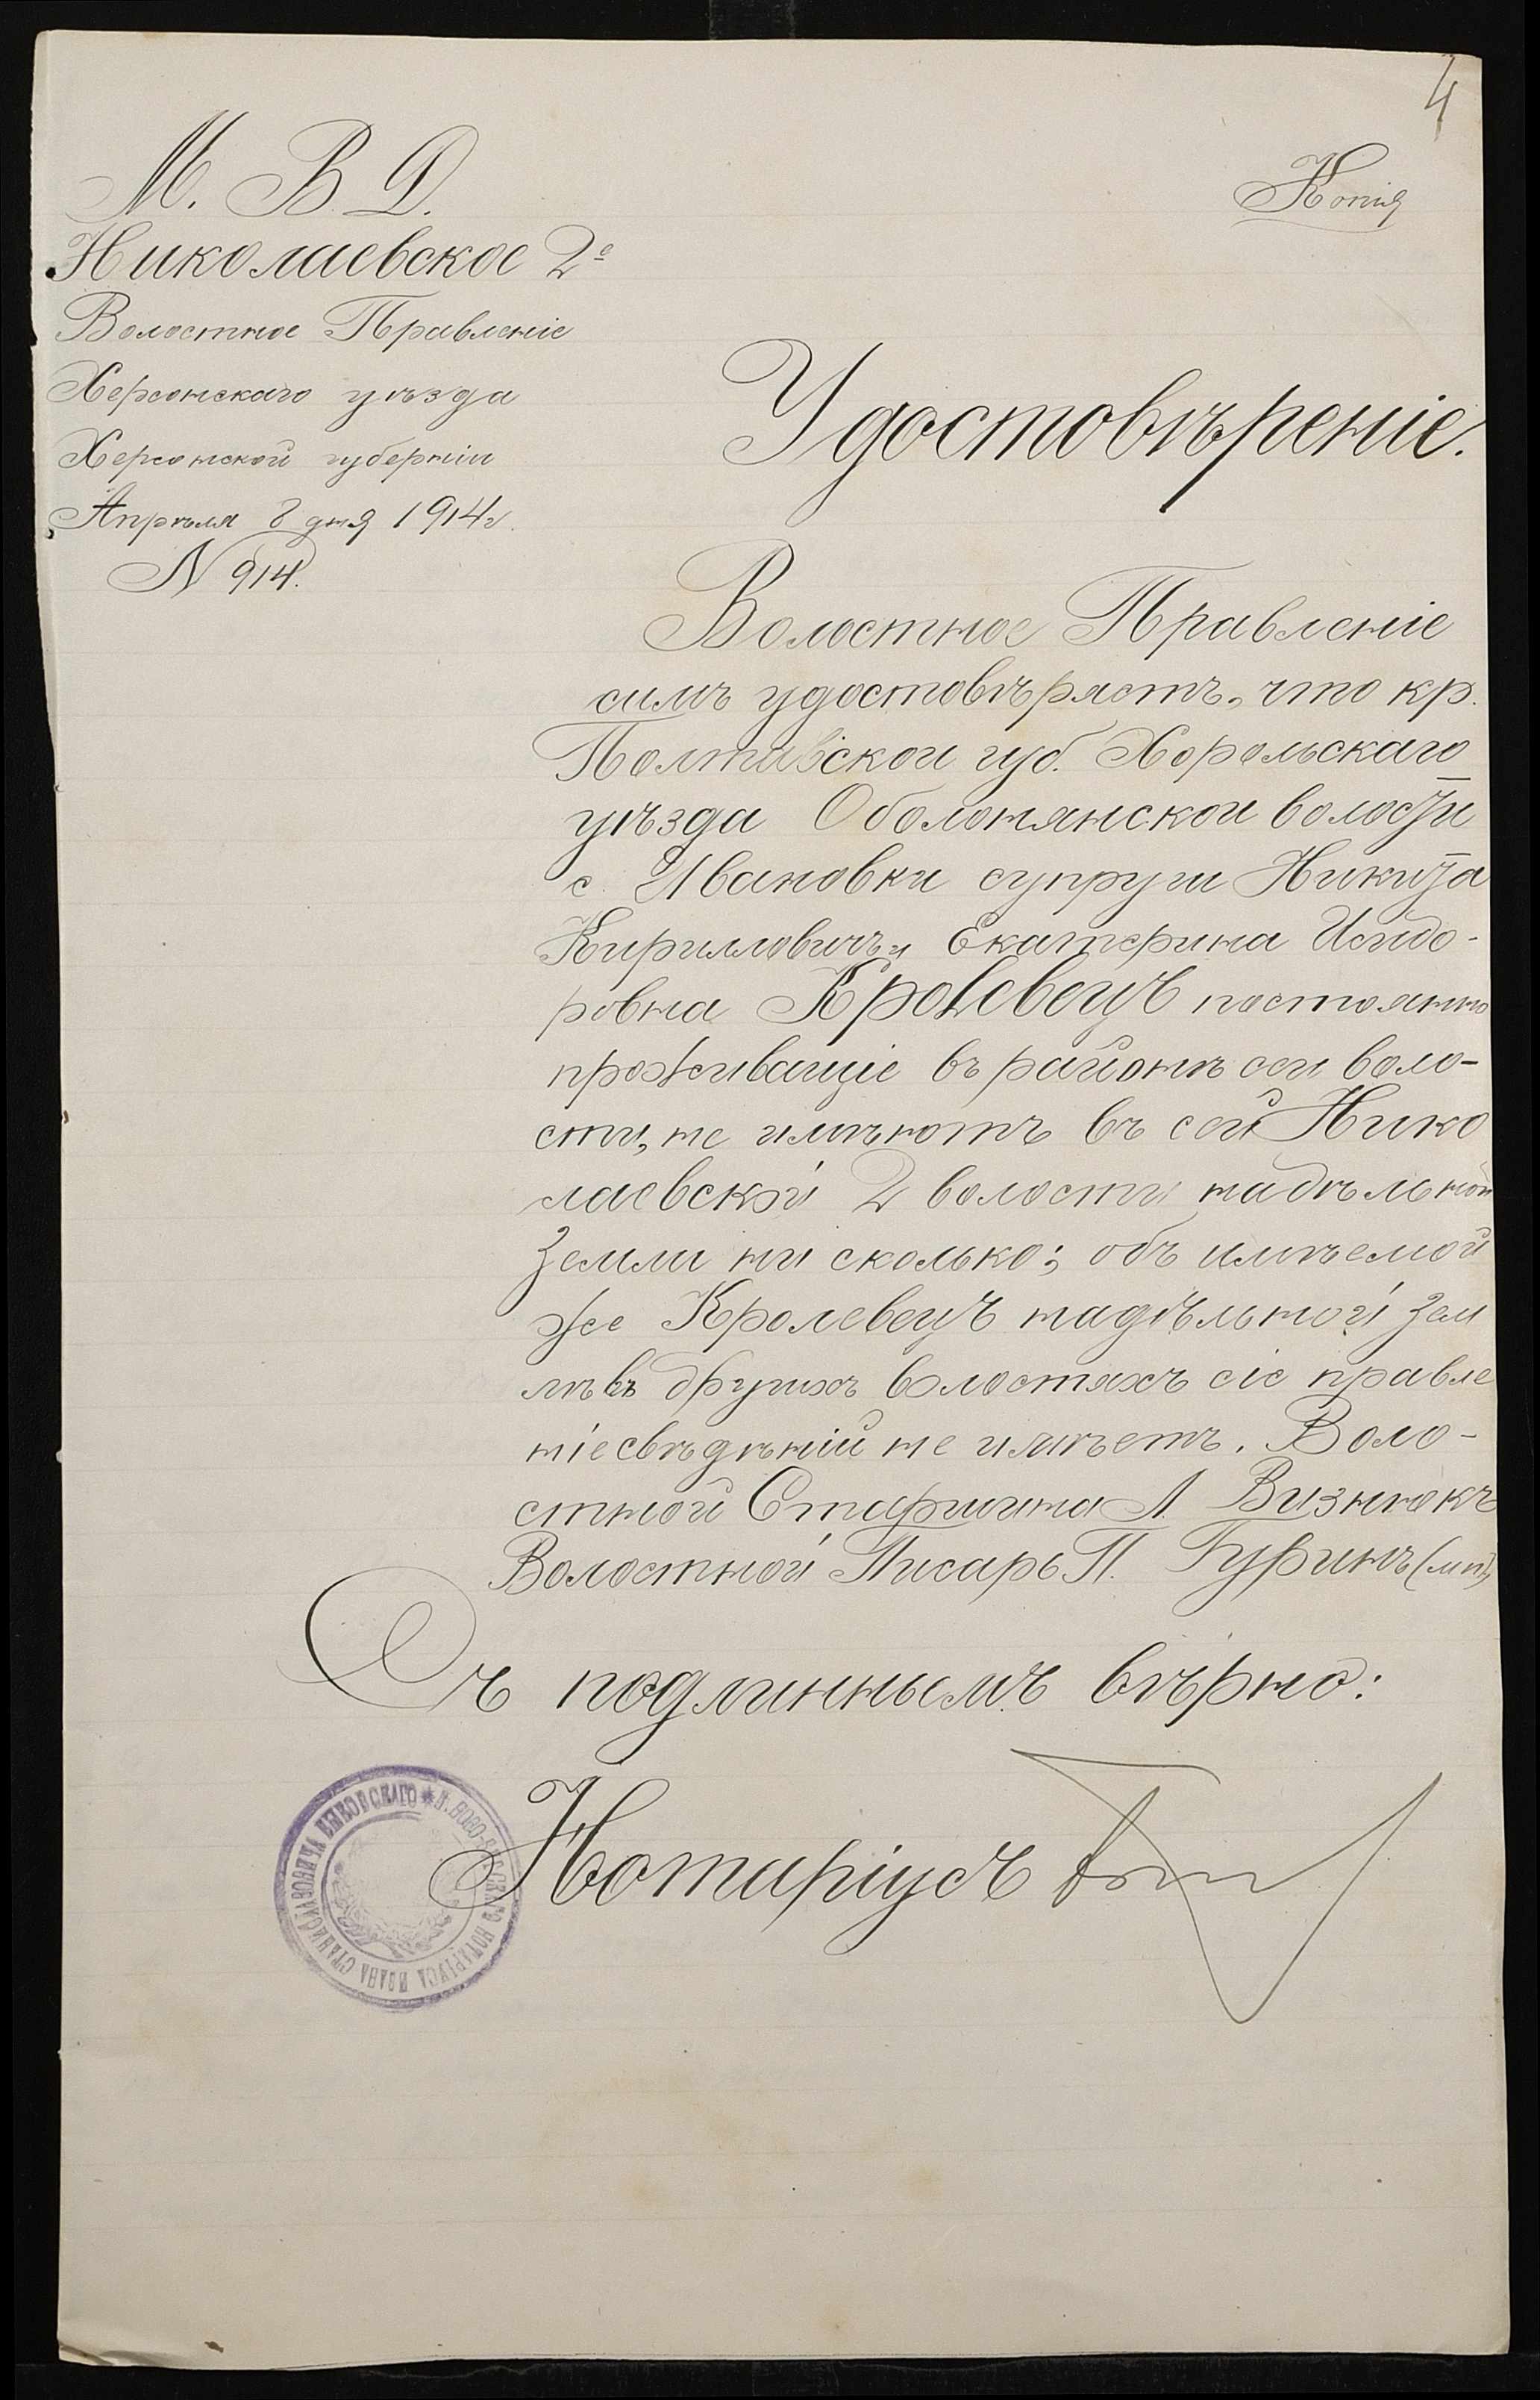 4
Копія
М. В. Д.
Николаевское 2е
Волостное Правленіе
Херсонскаго уѣзда
Херсонской губерніи
Апрѣля 8 дня 1914 г.
N 914.
Удостовѣреніе.
Волостное Правленіе
симъ удостовѣряетъ, что кр.
Полтавской губ. Хорольскаго
уѣзда Оболонянской волости
с. Ивановки супруги Никита
Кирилловичъ и Екатерина Исидо-
ровна Кролевецъ постоянно
проживащіе въ районѣ сей воло-
сти, не имѣютъ въ сей Нико
лаевской 2 волости надѣльной
земли ни сколько; объ имѣемой
же Кролевецъ надѣльной зем
лѣ въ другихъ волостяхъ сіе правле
ніе свѣдѣній не имѣетъ. Воло-
стной Старшина А. Визнюкъ
Волостной Писарь П. Гуринъ (мп)
Съ подлиннымъ вѣрно:
Нотаріусъ
НОТАРІУСА ИВАНА СТАНИСЛАВОВИЧА